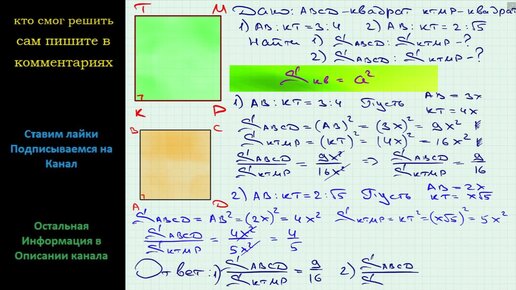 кто смог решить
сам пишите в
комментариях
Ставим лайки
Подписываемся на
Канал
Остальная
Информация в
Описании канала
T M
K P
B C
A D
Дано: ABCD - квадрат KTMP - квадрат
1) AB : KT = 3 : 4 2) AB : KT = 2 : √5
Найти 1) S ABCD : S KTMP - ?
2) S ABCD : S KTMP - ?
S кв = a²
1) AB : KT = 3 : 4 Пусть AB = 3x
KT = 4x
S ABCD = (AB)² = (3x)² = 9x²
S KTMP = (KT)² = (4x)² = 16x²
S ABCD / S KTMP = 9x² / 16x² => S ABCD / S KTMP = 9/16
2) AB : KT = 2 : √5 Пусть AB = 2x
KT = x√5
S ABCD = AB² = (2x)² = 4x² S KTMP = KT² = (x√5)² = 5x²
S ABCD / S KTMP = 4x² / 5x² = 4/5
Ответ: 1) S ABCD / S KTMP = 9/16 2) S ABCD / S